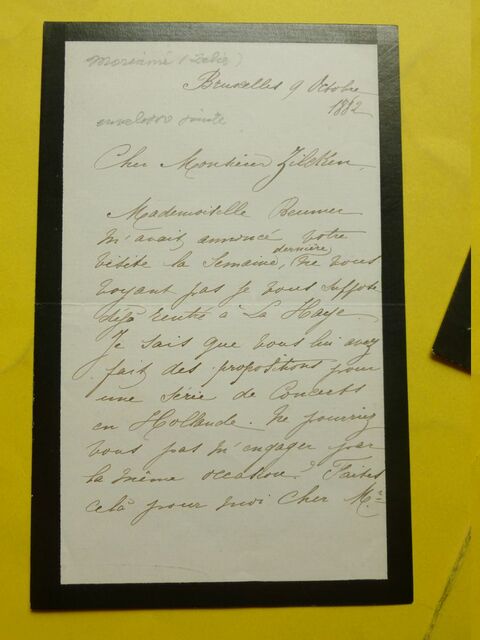 Moriamé (Zélie)
Bruxelles 9 Octobre
1882
enveloppe jointe
Cher Monsieur Zilcken,
Mademoiselle Beumer
m'avait annoncé votre
visite la semaine, dernière, ne vous
voyant pas je vous suppose
déjà rentré à La Haye.
Je sais que vous lui avez
fait des propositions pour
une série de Concerts
en Hollande. Ne pourriez
vous pas m'engager par
la même occasion? Faites
celà pour moi Cher Mr